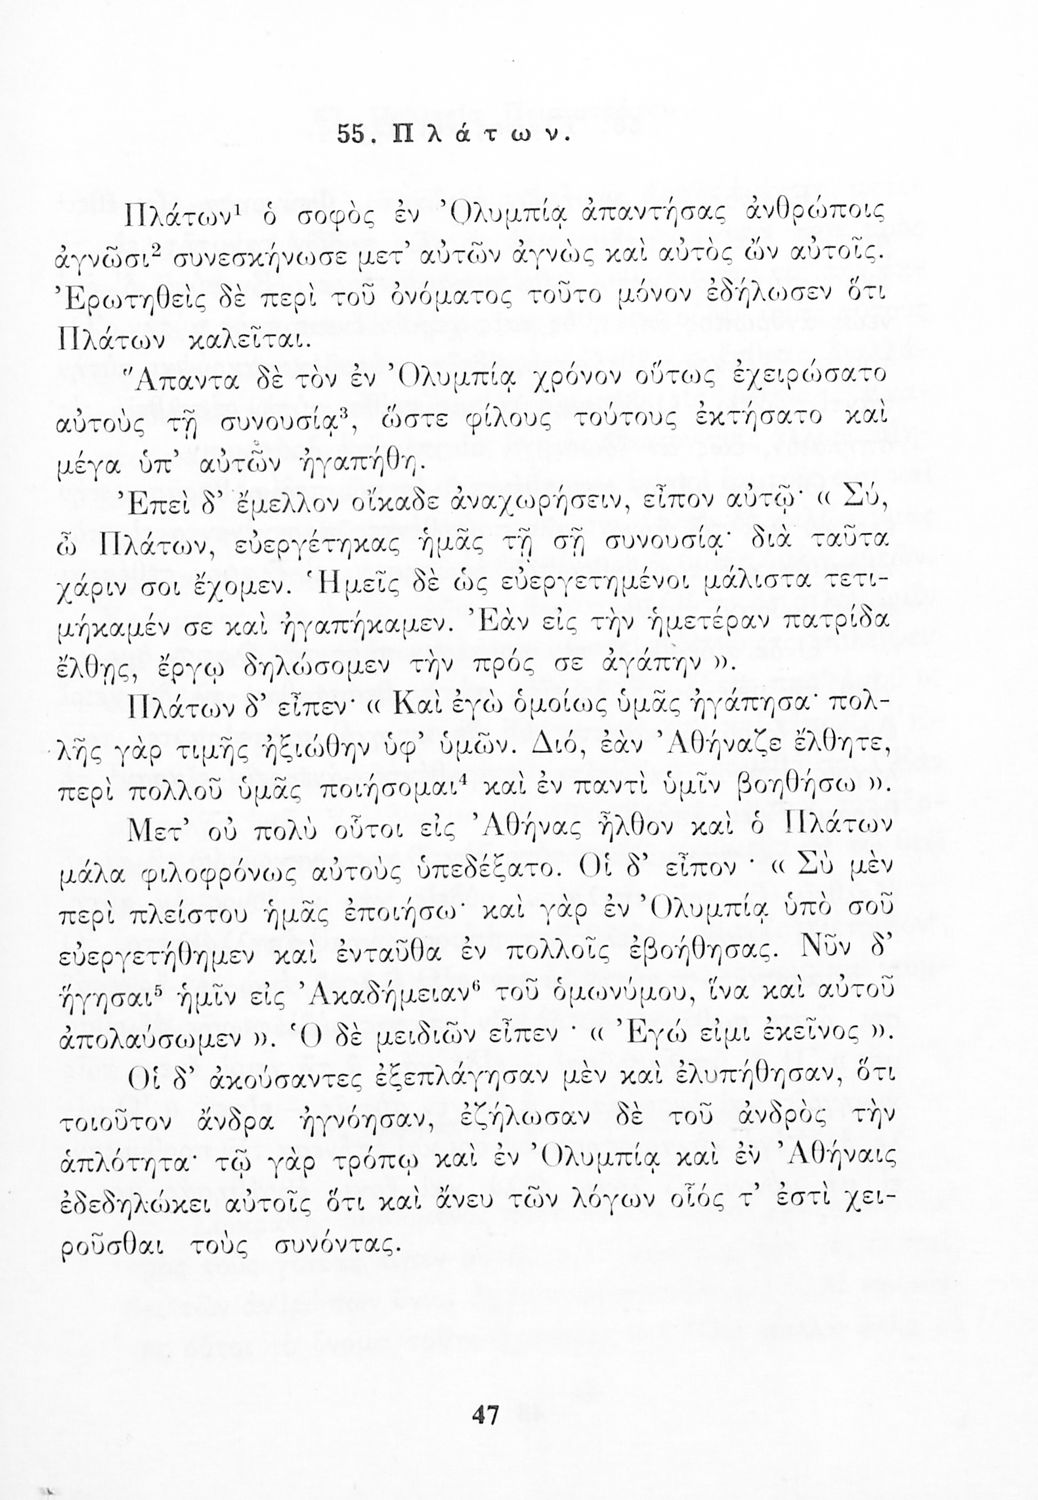 55. Πλάτων.
Πλάτων¹ ὁ σοφὸς ἐν Ὀλυμπίᾳ ἀπαντήσας ἀνθρώποις
ἀγνῶσι² συνεσκήνωσε μετ’ αὐτῶν ἀγνὼς καὶ αὐτὸς ὤν αὐτοῖς.
Ἐρωτηθεὶς δὲ περὶ τοῦ ὀνόματος τοῦτο μόνον ἐδήλωσεν ὅτι
Πλάτων καλεῖται.
Ἅπαντα δὲ τὸν ἐν Ὀλυμπίᾳ χρόνον οὕτως ἐχειρώσατο
αὐτοὺς τῇ συνουσίᾳ³, ὥστε φίλους τούτους ἐκτήσατο καὶ
μέγα ὑπ’ αὐτῶν ἠγαπήθη.
Ἐπεὶ δ’ ἔμελλον οἴκαδε ἀναχωρήσειν, εἶπον αὐτῷ· « Σύ,
ὦ Πλάτων, εὐεργέτηκας ἡμᾶς τῇ σῇ συνουσίᾳ· διὰ ταῦτα
χάριν σοι ἔχομεν. Ἡμεῖς δὲ ὡς εὐεργετημένοι μάλιστα τετι-
μήκαμέν σε καὶ ἠγαπήκαμεν. Ἐὰν εἰς τὴν ἡμετέραν πατρίδα
ἔλθῃς, ἔργῳ δηλώσομεν τὴν πρός σε ἀγάπην ».
Πλάτων δ’ εἶπεν· « Καὶ ἐγὼ ὁμοίως ὑμᾶς ἠγάπησα· πολ-
λῆς γὰρ τιμῆς ἠξιώθην ὑφ’ ὑμῶν. Διό, ἐὰν Ἀθήναζε ἔλθητε,
περὶ πολλοῦ ὑμᾶς ποιήσομαι⁴ καὶ ἐν παντὶ ὑμῖν βοηθήσω ».
Μετ’ οὐ πολὺ οὗτοι εἰς Ἀθήνας ἦλθον καὶ ὁ Πλάτων
μάλα φιλοφρόνως αὐτοὺς ὑπεδέξατο. Οἱ δ’ εἶπον · « Σὺ μὲν
περὶ πλείστου ἡμᾶς ἐποιήσω· καὶ γὰρ ἐν Ὀλυμπίᾳ ὑπὸ σοῦ
εὐεργετήθημεν καὶ ἐνταῦθα ἐν πολλοῖς ἐβοήθησας. Νῦν δ’
ἥγησαι⁵ ἡμῖν εἰς Ἀκαδήμειαν⁶ τοῦ ὁμωνύμου, ἵνα καὶ αὐτοῦ
ἀπολαύσωμεν ». Ὁ δὲ μειδιῶν εἶπεν · « Ἐγώ εἰμι ἐκεῖνος ».
Οἱ δ’ ἀκούσαντες ἐξεπλάγησαν μὲν καὶ ἐλυπήθησαν, ὅτι
τοιοῦτον ἄνδρα ἠγνόησαν, ἐζήλωσαν δὲ τοῦ ἀνδρὸς τὴν
ἁπλότητα· τῷ γὰρ τρόπῳ καὶ ἐν Ὀλυμπίᾳ καὶ ἐν Ἀθήναις
ἐδεδηλώκει αὐτοῖς ὅτι καὶ ἄνευ τῶν λόγων οἷός τ’ ἐστὶ χει-
ροῦσθαι τοὺς συνόντας.
47